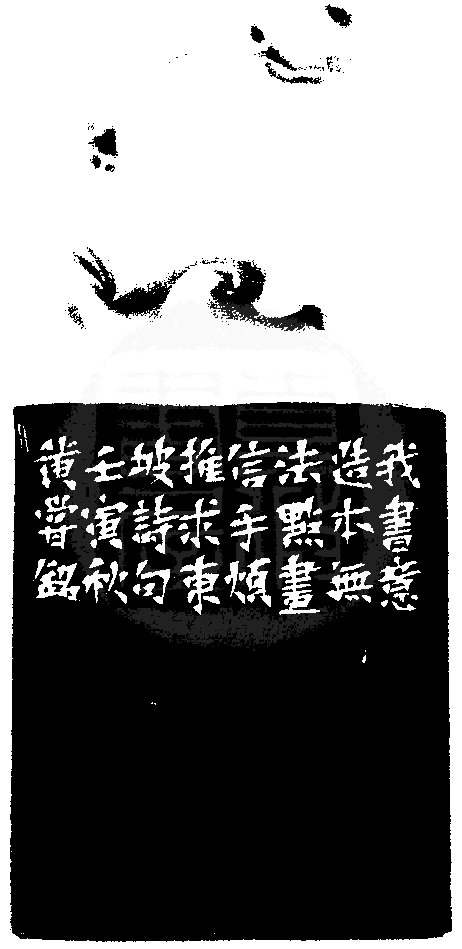 我書意
造本無
法點畫
信手煩
推求東
坡詩句
壬寅秋
黄嘗銘